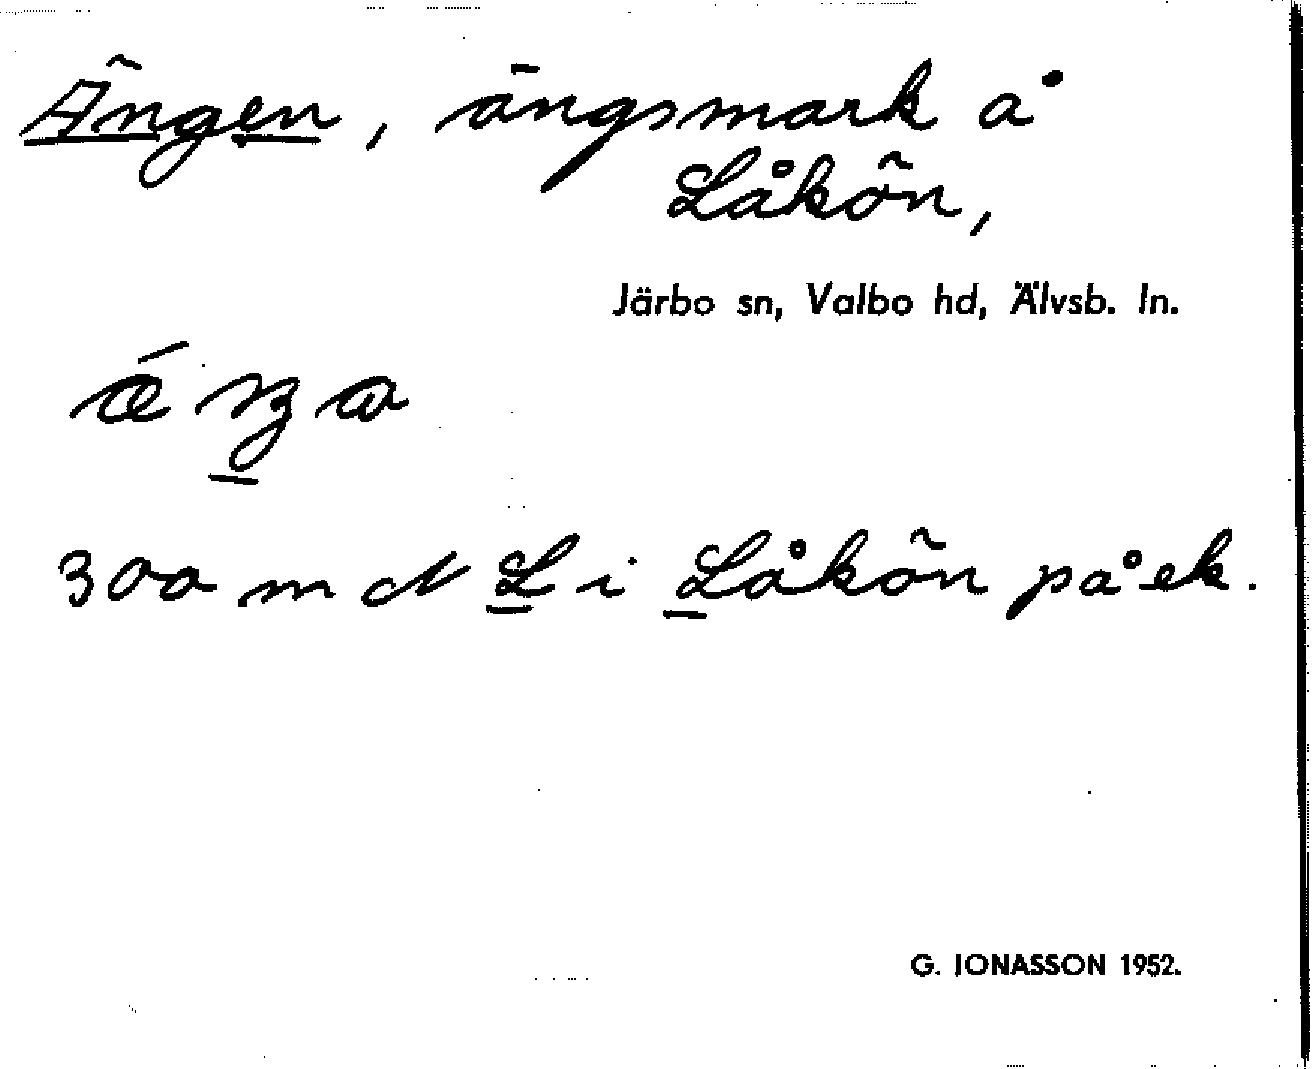 Ängen, ängsmark å
Låkön,
Järbo sn, Valbo hd, Älvsb. ln.
300 m N L i Låkön på ek.
G. IONASSON 1952.